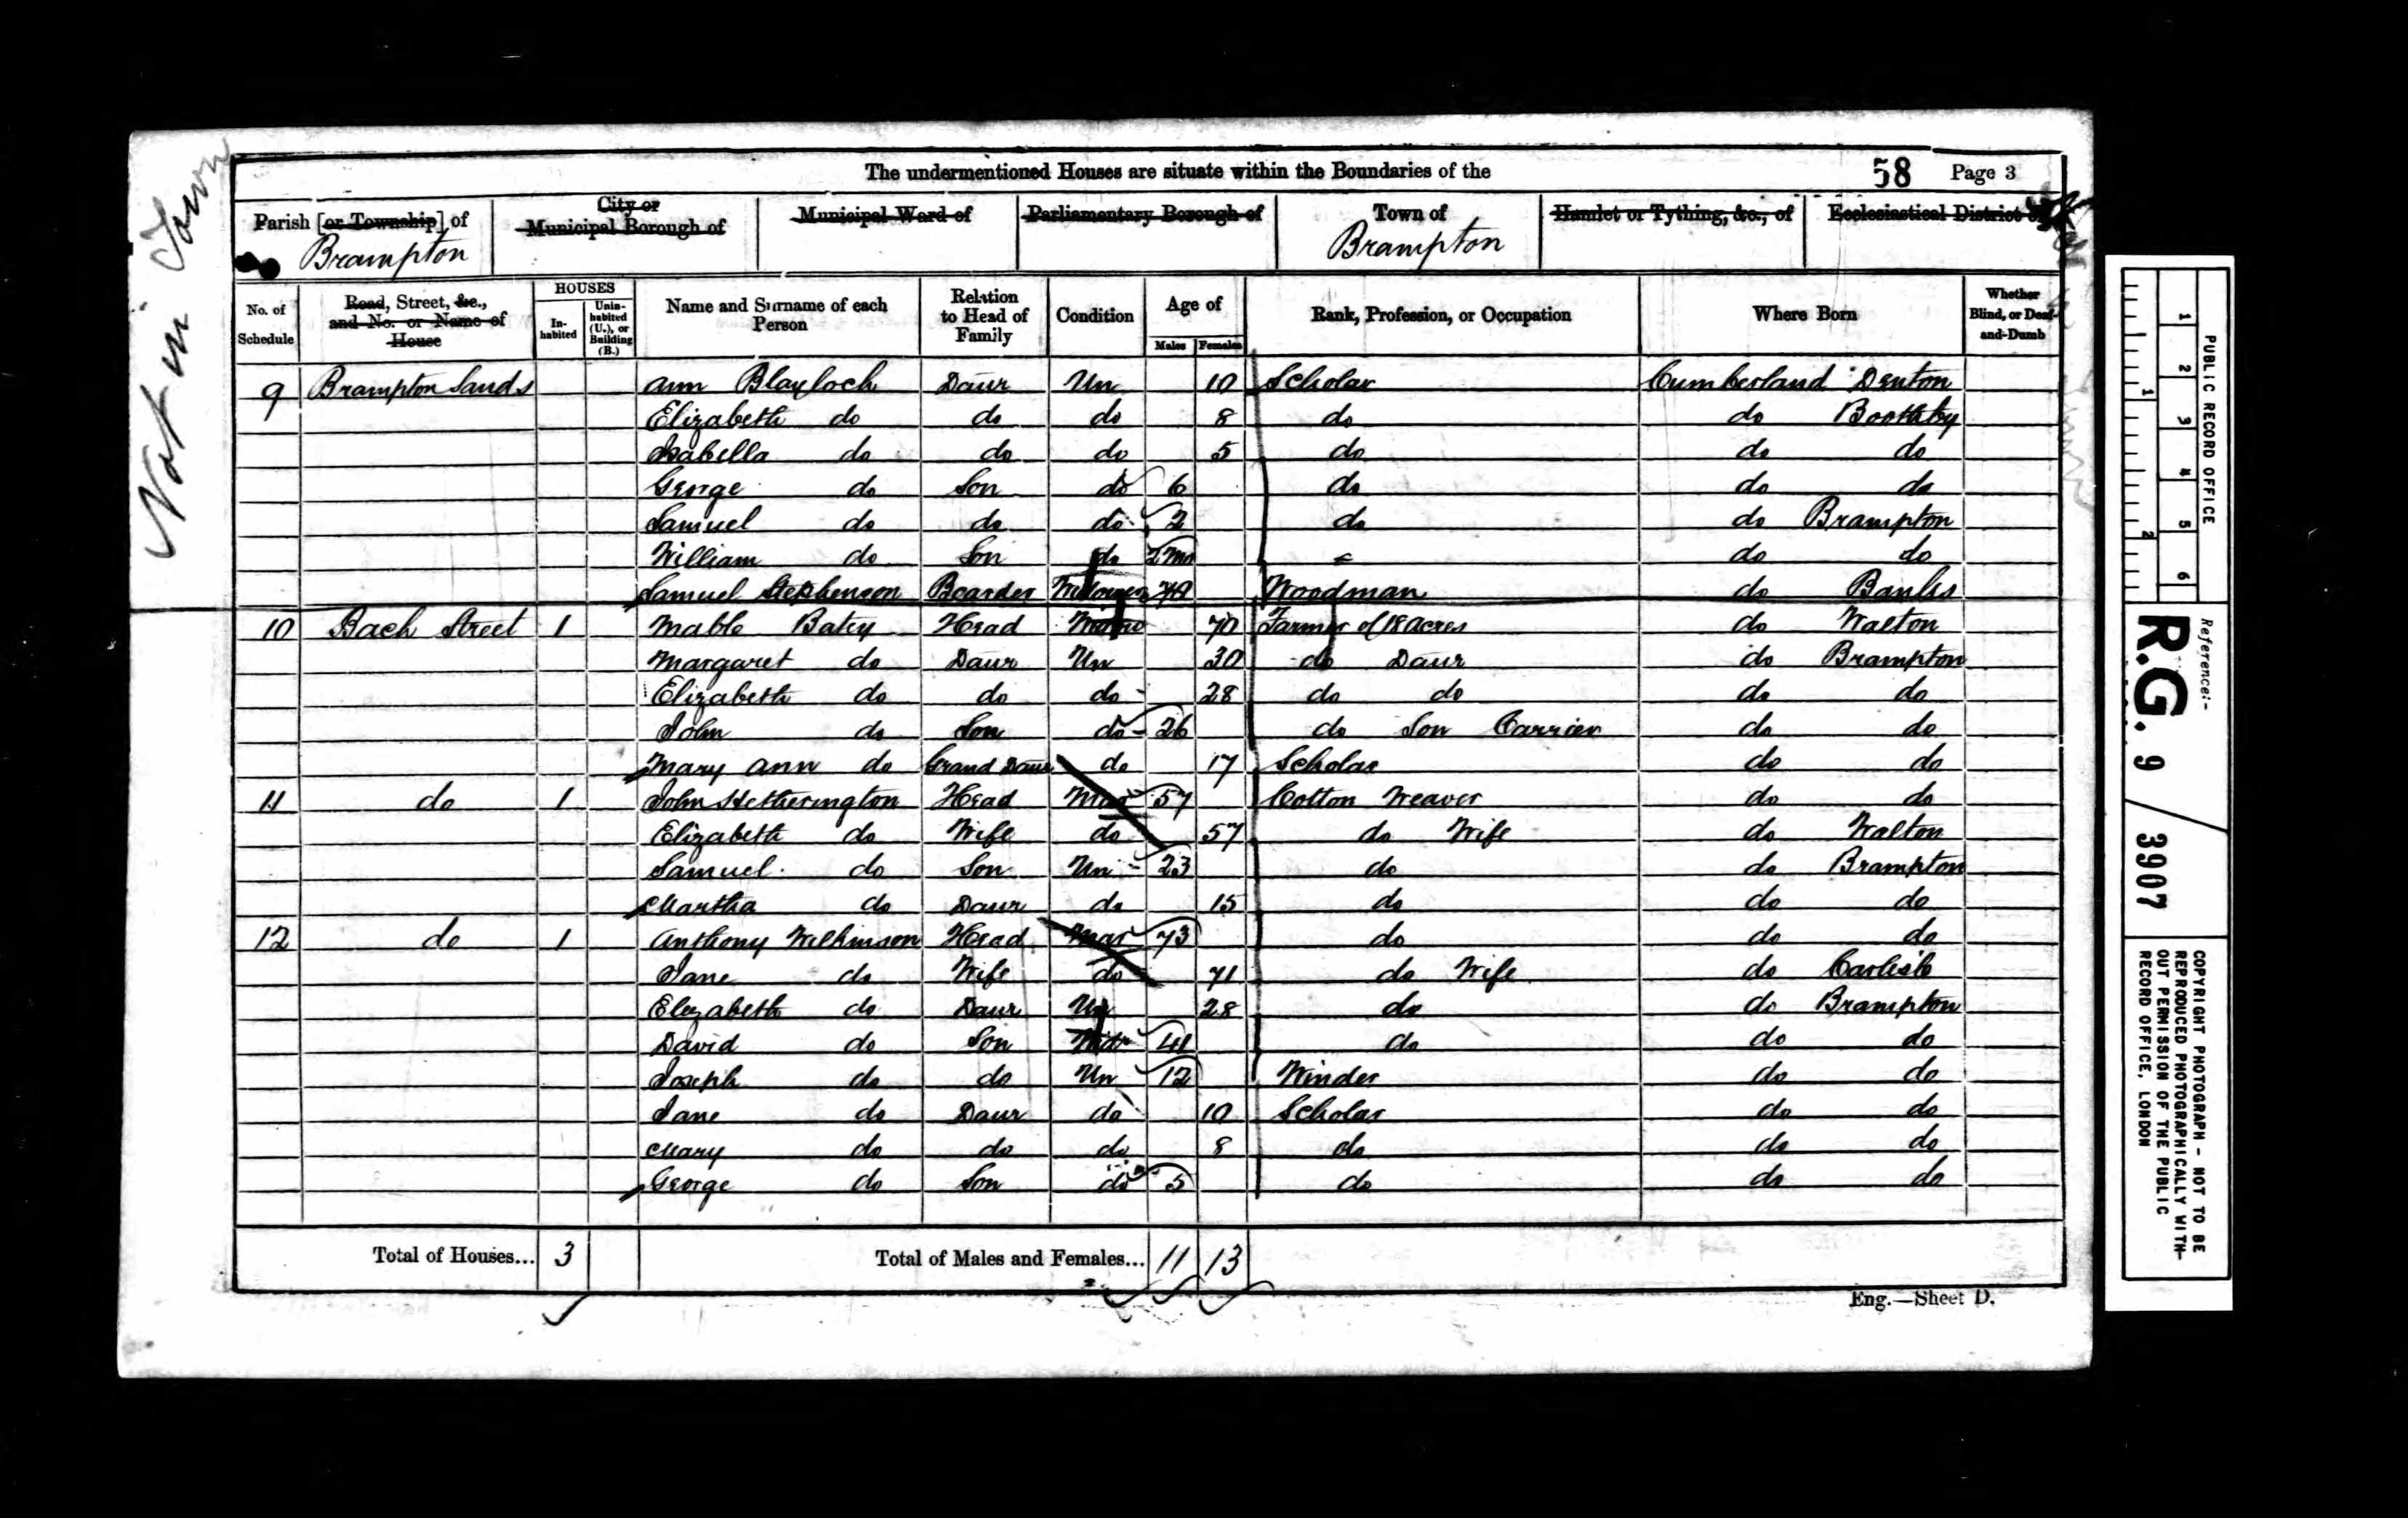 Not in Town
The undermentioned Houses are situate within the Boundaries of the 58 Page 3
Parish [or Township] of Brampton
City or Municipal Borough of
Municipal Ward of
Parliamentary Borough of
Town of Brampton
Hamlet or Tything, &c., of
Ecclesiastical District of
No. of Schedule
Road, Street, &c., and No. or Name of House
HOUSES
In-habited
Unin-habited (U.), or Building (B.)
Name and Surname of each Person
Relation to Head of Family
Condition
Age of
Males Females
Rank, Profession, or Occupation
Where Born
Whether Blind, or Deaf-and-Dumb
9 Brampton Sands Ann Blaylock Daur Un 10 Scholar Cumberland Denton
Elizabeth do do do 8 do do Boothby
Isabella do do do 5 do do do
George do Son do 6 do do do
Samuel do do do 2 do do Brampton
William do Son do 2 Mo do do
Samuel Stephenson Boarder Widower Woodman do Banks
10 Back Street 1 Mable Batey Head 70 Farmer of 18 acres do Walton
Margaret do Daur Un 30 do Daur do Brampton
Elizabeth do do do 28 do do do do
John do Son do 26 do Son Carrier do do
Mary Ann do Grand Daur do 17 Scholar do do
11 do 1 John Hetherington Head Mar 57 Cotton Weaver do do
Elizabeth do Wife do 57 do Wife do Walton
Samuel do Son Un 23 do do Brampton
Martha do Daur do 15 do do do
12 do 1 Anthony Wilkinson Head Mar 73 do do do
Jane do Wife do 71 do Wife do Carlisle
Elizabeth do Daur Un 28 do do Brampton
David do Son Widr 41 do do do
Joseph do do Un 12 Winder do do
Jane do Daur do 10 Scholar do do
Mary do do do 8 do do do
George do Son do 5 do do do
Total of Houses... 3 Total of Males and Females... 11 13
Eng.—Sheet D.
1 2 3 4 5 6
1 2
PUBLIC RECORD OFFICE
Reference:-
R.G. 9 / 3907
COPYRIGHT PHOTOGRAPH - NOT TO BE
REPRODUCED PHOTOGRAPHICALLY WITH-
OUT PERMISSION OF THE PUBLIC
RECORD OFFICE, LONDON